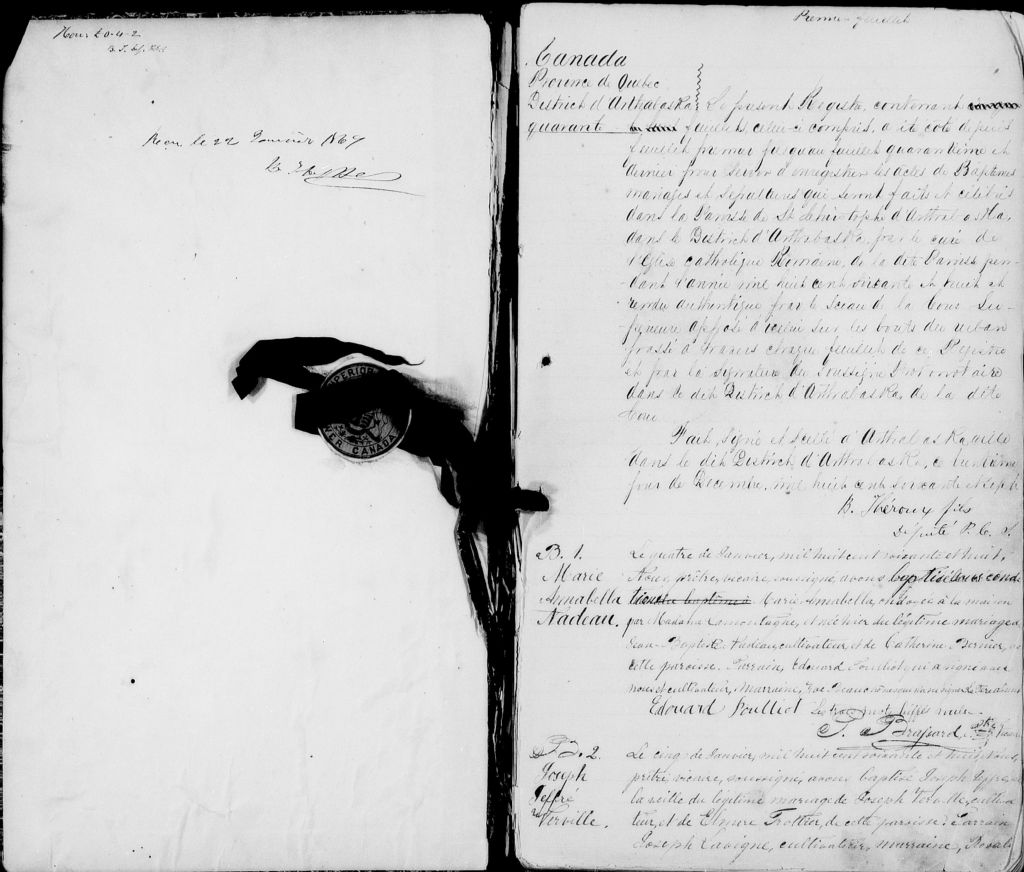 Reçu le 22 Janvier 1869
SUPERIOR
LOWER CANADA
Premier feuillet
Canada
Province de Québec
District d'Arthabaska
Le présent Registre, contenant
quarante feuillets, celui-ci compris, a été coté depuis
feuillet premier jusqu'au feuillet quarantième et
dernier pour servir à enregistrer les actes de Baptêmes
mariages et sépultures qui seront faits et célébrés
dans la Paroisse de St Christophe d'Arthabaska,
dans le District d'Arthabaska, par le curé de
l'Eglise catholique Romaine, de la dite Paroisse pen-
dant l'année mil huit cent soixante et huit et
rendu authentique par le Sceau de la Cour Su-
périeure apposé à icelui sur les bouts du ruban
passé à travers chaque feuillet de ce Régistre
et par la signature du soussigné Protonotaire
dans le dit District d'Arthabaska, de la dite
Cour.
Fait, Signé et Scellé à Arthabaskaville
dans le dit District d'Arthabaska, ce trentième
jour de Décembre, mil huit cent soixante et sept
B. Théroux fils
Député P. C. S.
B. 1.
Marie
Annabella
Nadeau.
Le quatre de Janvier, mil huit cent soixante et huit,
Nous, prêtre, vicaire, soussigné, avons baptisé sous condi
tion Marie Annabella, ondoyée à la maison
par Madame Lamontagne, et née hier du légitime mariage de
Jean-Baptiste Nadeau, cultivateur, et de Catherine Bernier, de
cette paroisse. Parrain, Edouard Pouliot, qui a signé avec
nous et cultivateur, Marraine,
Edouard Pouliot
Les trois mots biffés nuls.
B. 2
Joseph
Jeffré
Verville.
Le cinq de Janvier, mil huit cent soixante et huit, Nous,
prêtre, vicaire, soussigné, avons baptisé Joseph Jeffré, né
la veille du légitime mariage de Joseph Verville, cultiva
teur, et de Elmire Trottier, de cette paroisse. Parrain
Joseph Lavigne, cultivateur, marraine,